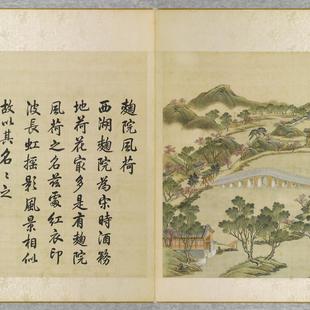 麯院風荷
西湖麯院為宋時酒務
地荷花最多是有麯院
風荷之名茲處紅衣印
波長虹搖影風景相似
故以其名〻之